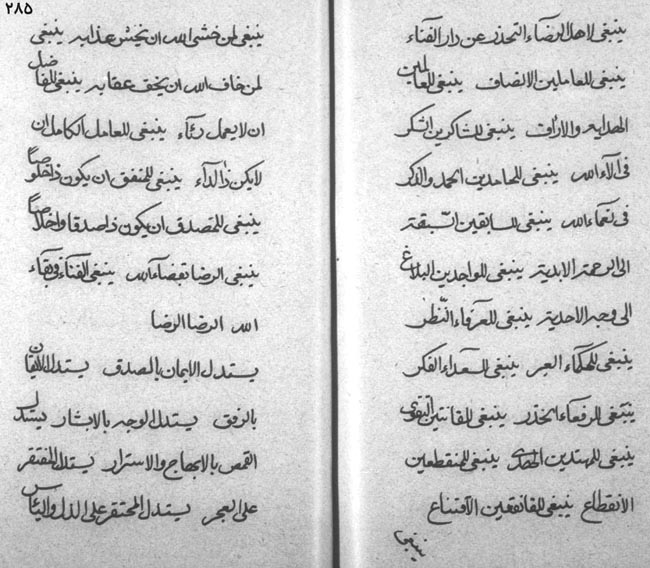 ينبغی لاهل الرضاء التحذر عن دار الفناء
ينبغی للعاملين الانصاف ينبغی للعالمين
ينبغی للشاكرين الشكر
فی آلاء الله ينبغی للحامدين الحمد والذكر
فی نعماء الله ينبغی للسابقين السبقة
الی الرحمة الابدية ينبغی للواجدين البلاغ
الی وجه الاحدية ينبغی للعرفاء النظر
ينبغی للحكماء العبر ينبغی للسعداء الفكر
ينبغی للرفعاء الحذر ينبغی للقانتين التقوی
ينبغی للمهتدين الهدی ينبغی للمنقطعين
الانقطاع ينبغی للقانعين الاقتناع
ينبغی
٢٨٥
ينبغی لمن خشی الله ان يخش عذابه ينبغی
لمن خاف الله ان يخف عقابه ينبغی للفاضل
ان لا يعمل رئاء ينبغی للعامل الكامل ان
لا يكن ذا الداء ينبغی للمنفق ان يكون ذا خلوصا
ينبغی للمتصدق ان يكون ذا صدقا واخلاصا
ينبغی الرضا بقضاء الله ينبغی الفناء فی بقاء
الله الرضا الرضا
يستدل الايمان بالصدق يستدل الايقان
بالرفق يستدل الوجه بالابشار يستدل
بالابهاج والاسترار يستدل المفتقر
علی العجز يستدل المحتقر علی الذل والياس